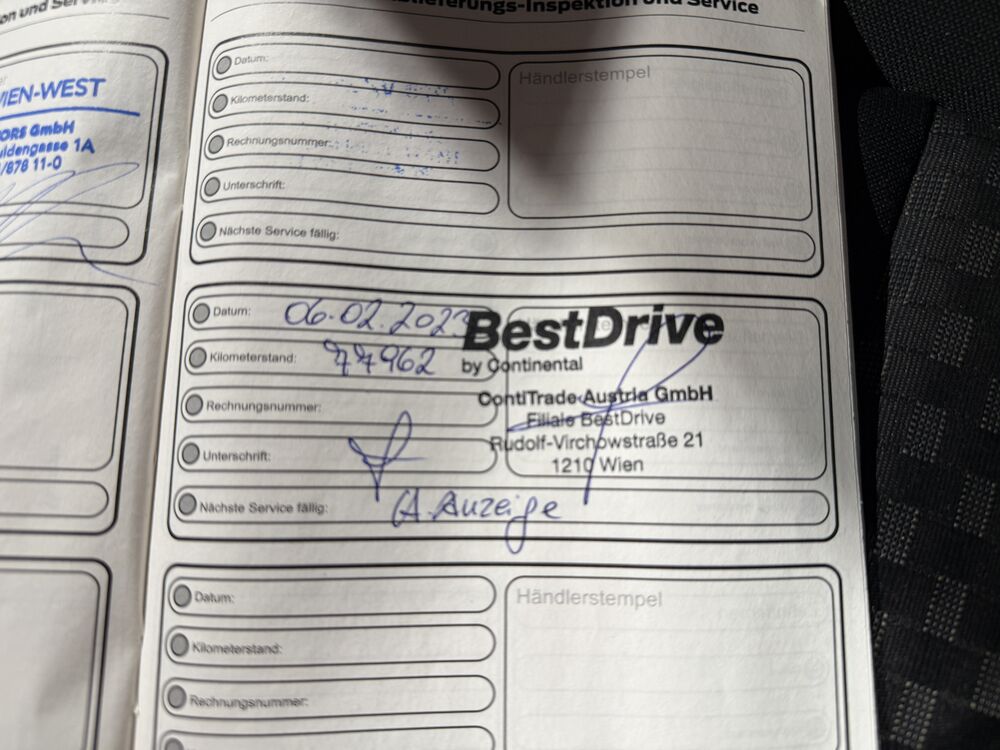 WIEN-WEST
ORS GmbH
uldengasse 1A
/878 11-0
slieferungs-Inspektion und Service
Datum:
Händlerstempel
Kilometerstand:
Rechnungsnummer:
Unterschrift:
Nächste Service fällig:
Datum: 06.02.2023
BestDrive
Kilometerstand: 77962
by Continental
ContiTrade Austria GmbH
Rechnungsnummer:
Filiale BestDrive
Rudolf-Virchowstraße 21
Unterschrift:
1210 Wien
Nächste Service fällig: lt. Anzeige
Datum:
Händlerstempel
Kilometerstand:
Rechnungsnummer: